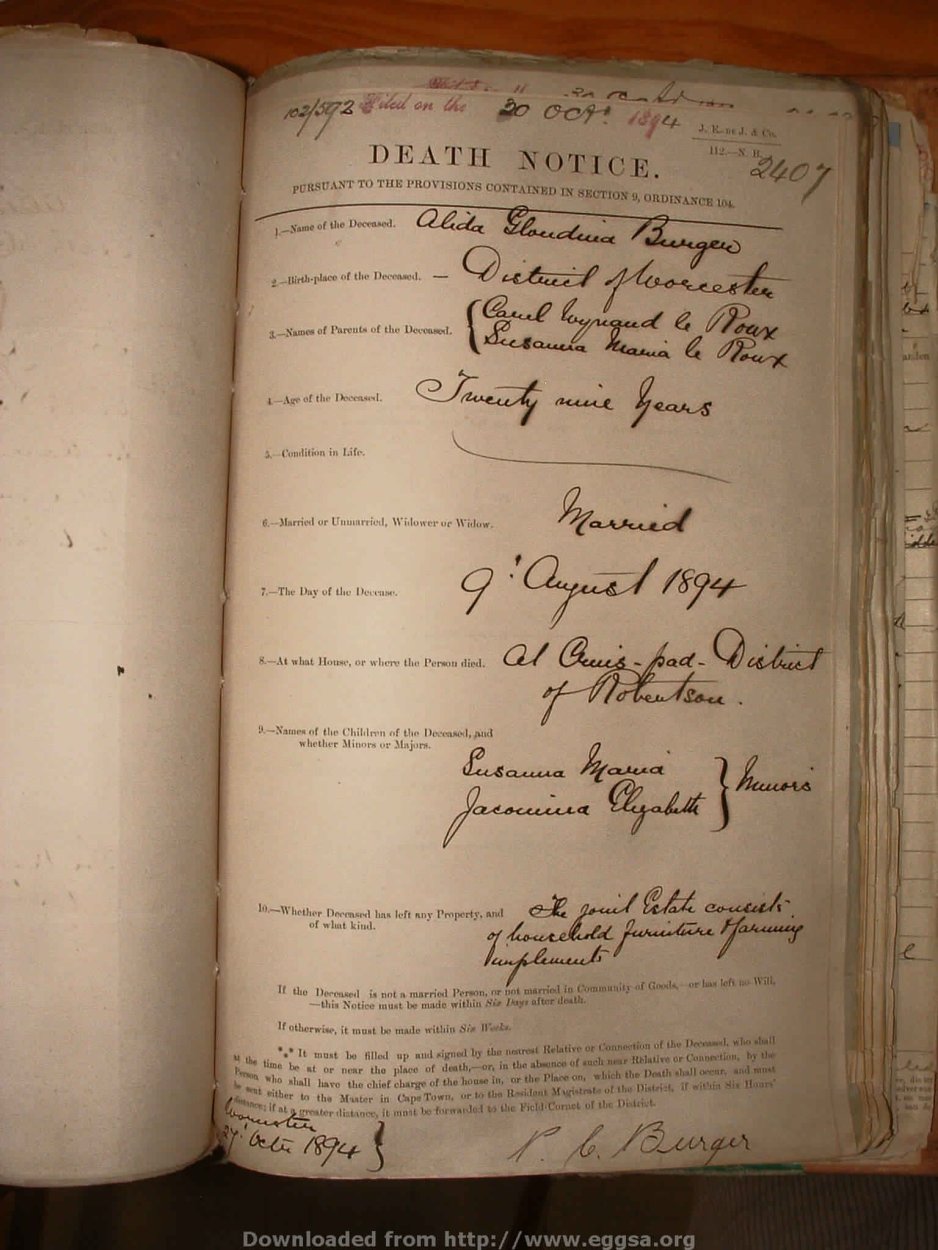 102/592 Filed on the 30 Oct. 1894
J. E.-DE J. & Co.
112.—N. B.
2407
DEATH NOTICE.
PURSUANT TO THE PROVISIONS CONTAINED IN SECTION 9, ORDINANCE 104.
1.—Name of the Deceased. Alida Gloudina Burger
2.—Birth-place of the Deceased. — District of Worcester
3.—Names of Parents of the Deceased. { Carel Wynand le Roux
Susanna Maria le Roux
4.—Age of the Deceased. Twenty nine Years
5.—Condition in Life.
6.—Married or Unmarried, Widower or Widow. Married
7.—The Day of the Decease. 9: August 1894
8.—At what House, or where the Person died. At -pad- District
of Robertson.
9.—Names of the Children of the Deceased, and
whether Minors or Majors.
Susanna Maria
Jacomina Elizabeth } Minors
10.—Whether Deceased has left any Property, and The joint Estate consists
of what kind. of household furniture & farming
implements
If the Deceased is not a married Person, or not married in Community of Goods,—or has left no Will,
—this Notice must be made within Six Days after death.
If otherwise, it must be made within Six Weeks.
*** It must be filled up and signed by the nearest Relative or Connection of the Deceased, who shall
at the time be at or near the place of death,—or, in the absence of such near Relative or Connection, by the
Person who shall have the chief charge of the house in, or the Place on, which the Death shall occur, and must
be sent either to the Master in Cape Town, or to the Resident Magistrate of the District, if within Six Hours'
distance; if at a greater distance, it must be forwarded to the Field-Cornet of the District.
Worcester
27: Octr 1894 }
P. C. Burger
Downloaded from http://www.eggsa.org